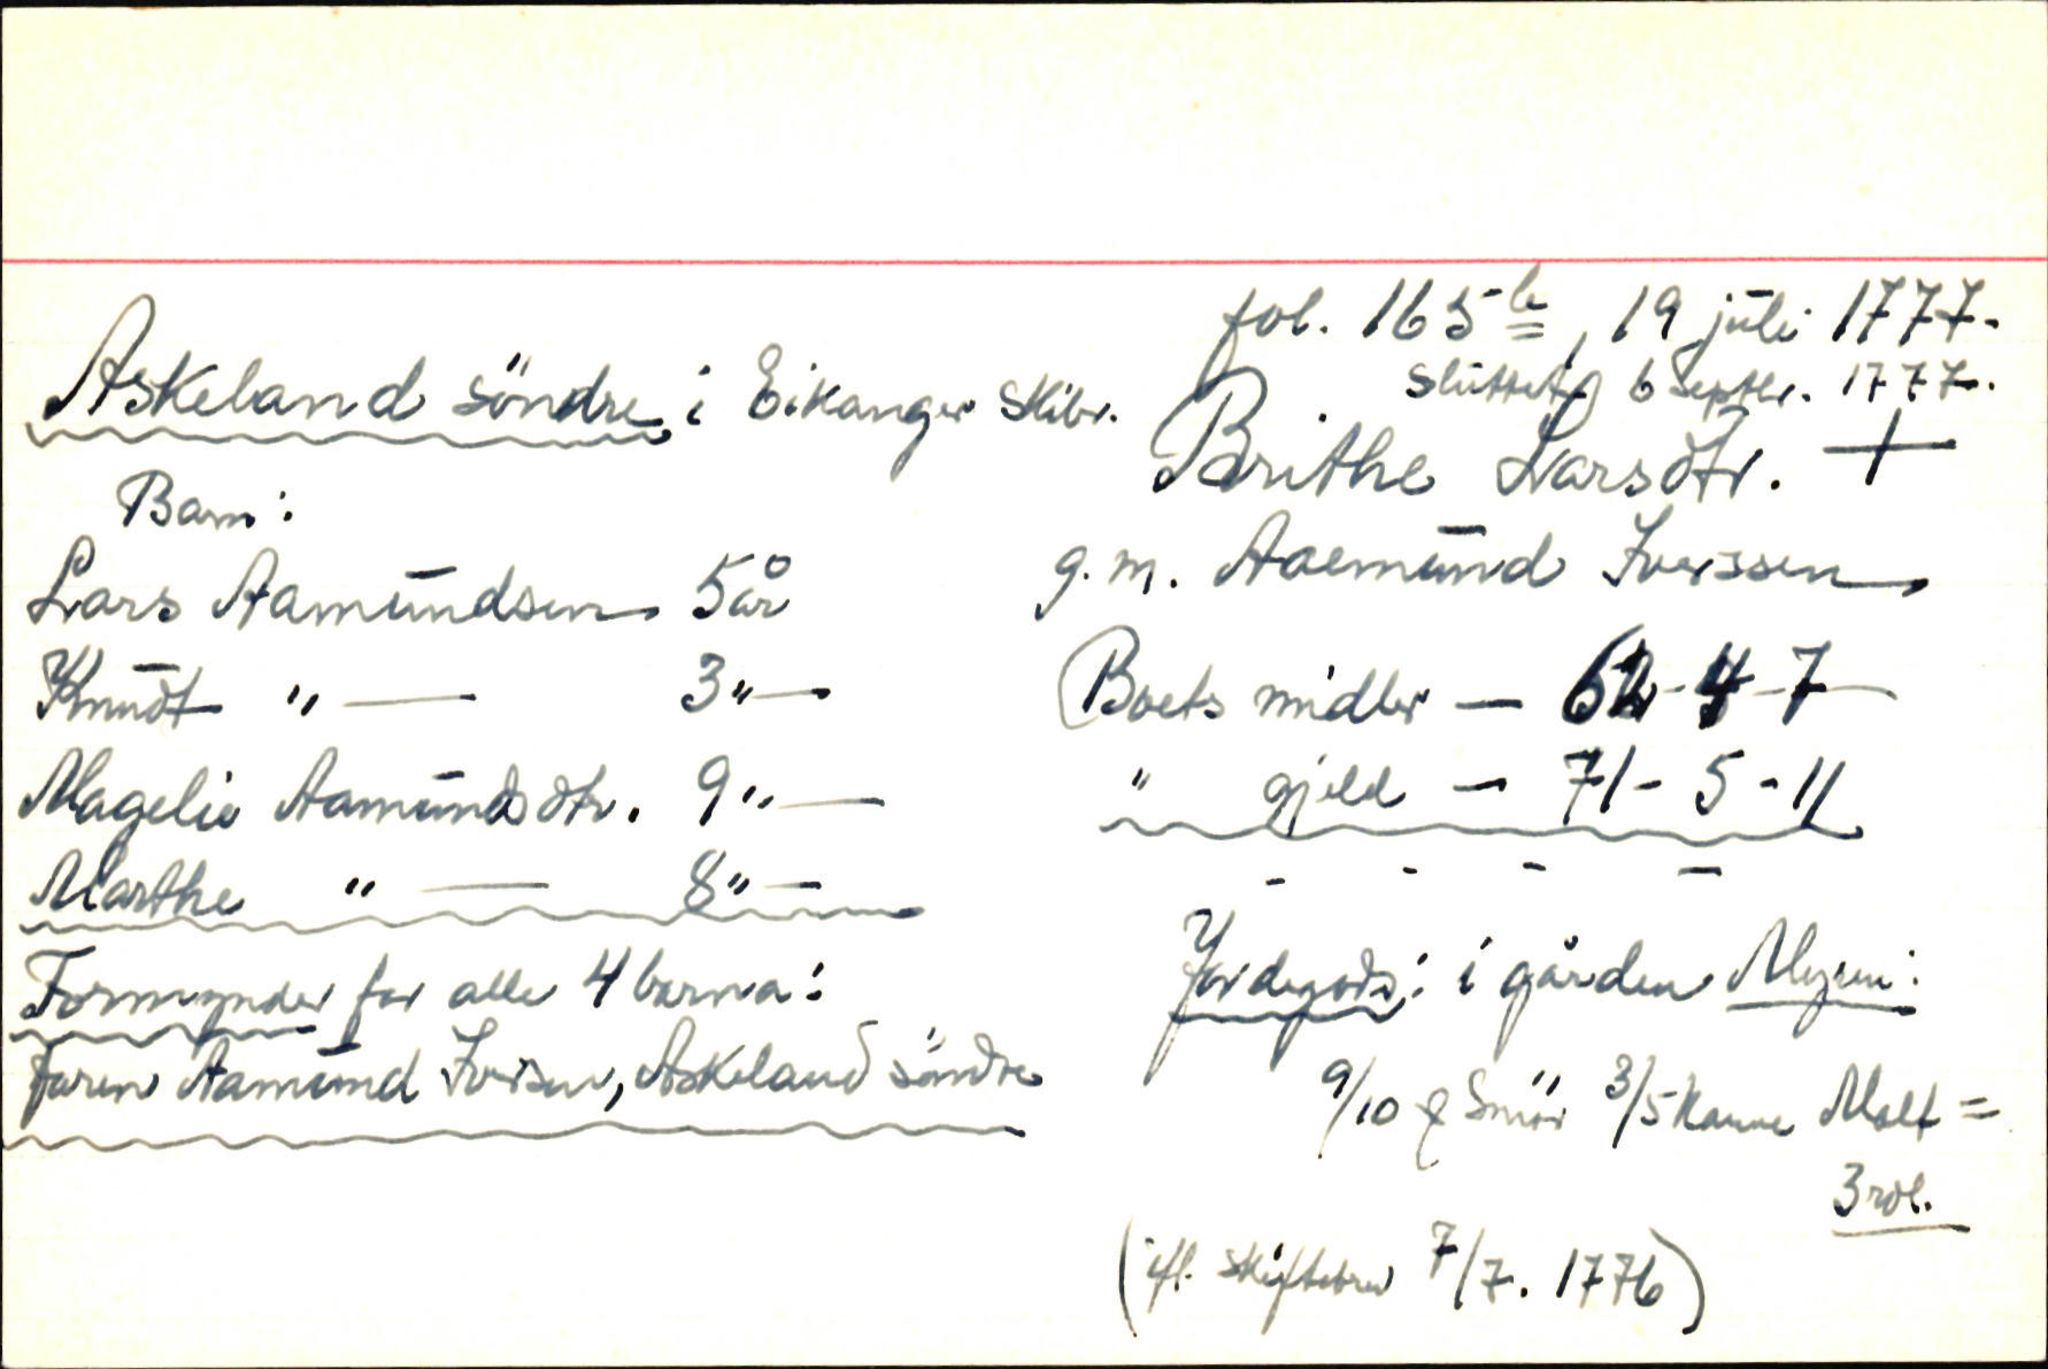 fol. 165 b, 19 juli 1777.
Askeland søndre i Eikanger Skibr.
sluttet 6 septbr. 1777.
Brithe Larsdtr. +
Barn:
g.m. Aaemund Iverssen,
Lars Aamundsen 5 år
Knudt " — 3 " —
Boets midler — 62-4-7
Magelie Aamundsdtr. 9 " —
" gjeld — 71-5-11
Marthe " — 8 " —
Jordegods: i gården Myren:
Formynder for alle 4 barna:
faren Aamund Iversen, Askeland søndre
9/10 Smør 3/5 Kanne Malt =
3 rdl.
(ifl. Skiftebrev 7/7. 1776)